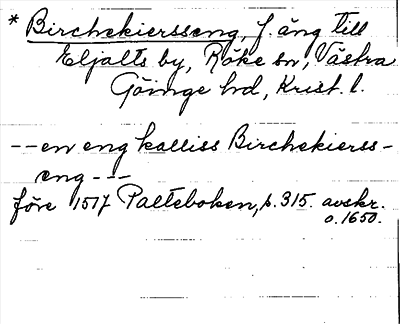 * Birchekiersseng, f. äng till
Eljalts by, Röke sn, Västra
Göinge hd, Krist. l.
-- en eng kalliss Birchekierss-
eng ---
före 1517 Palteboken, p. 315. avskr.
o. 1650.